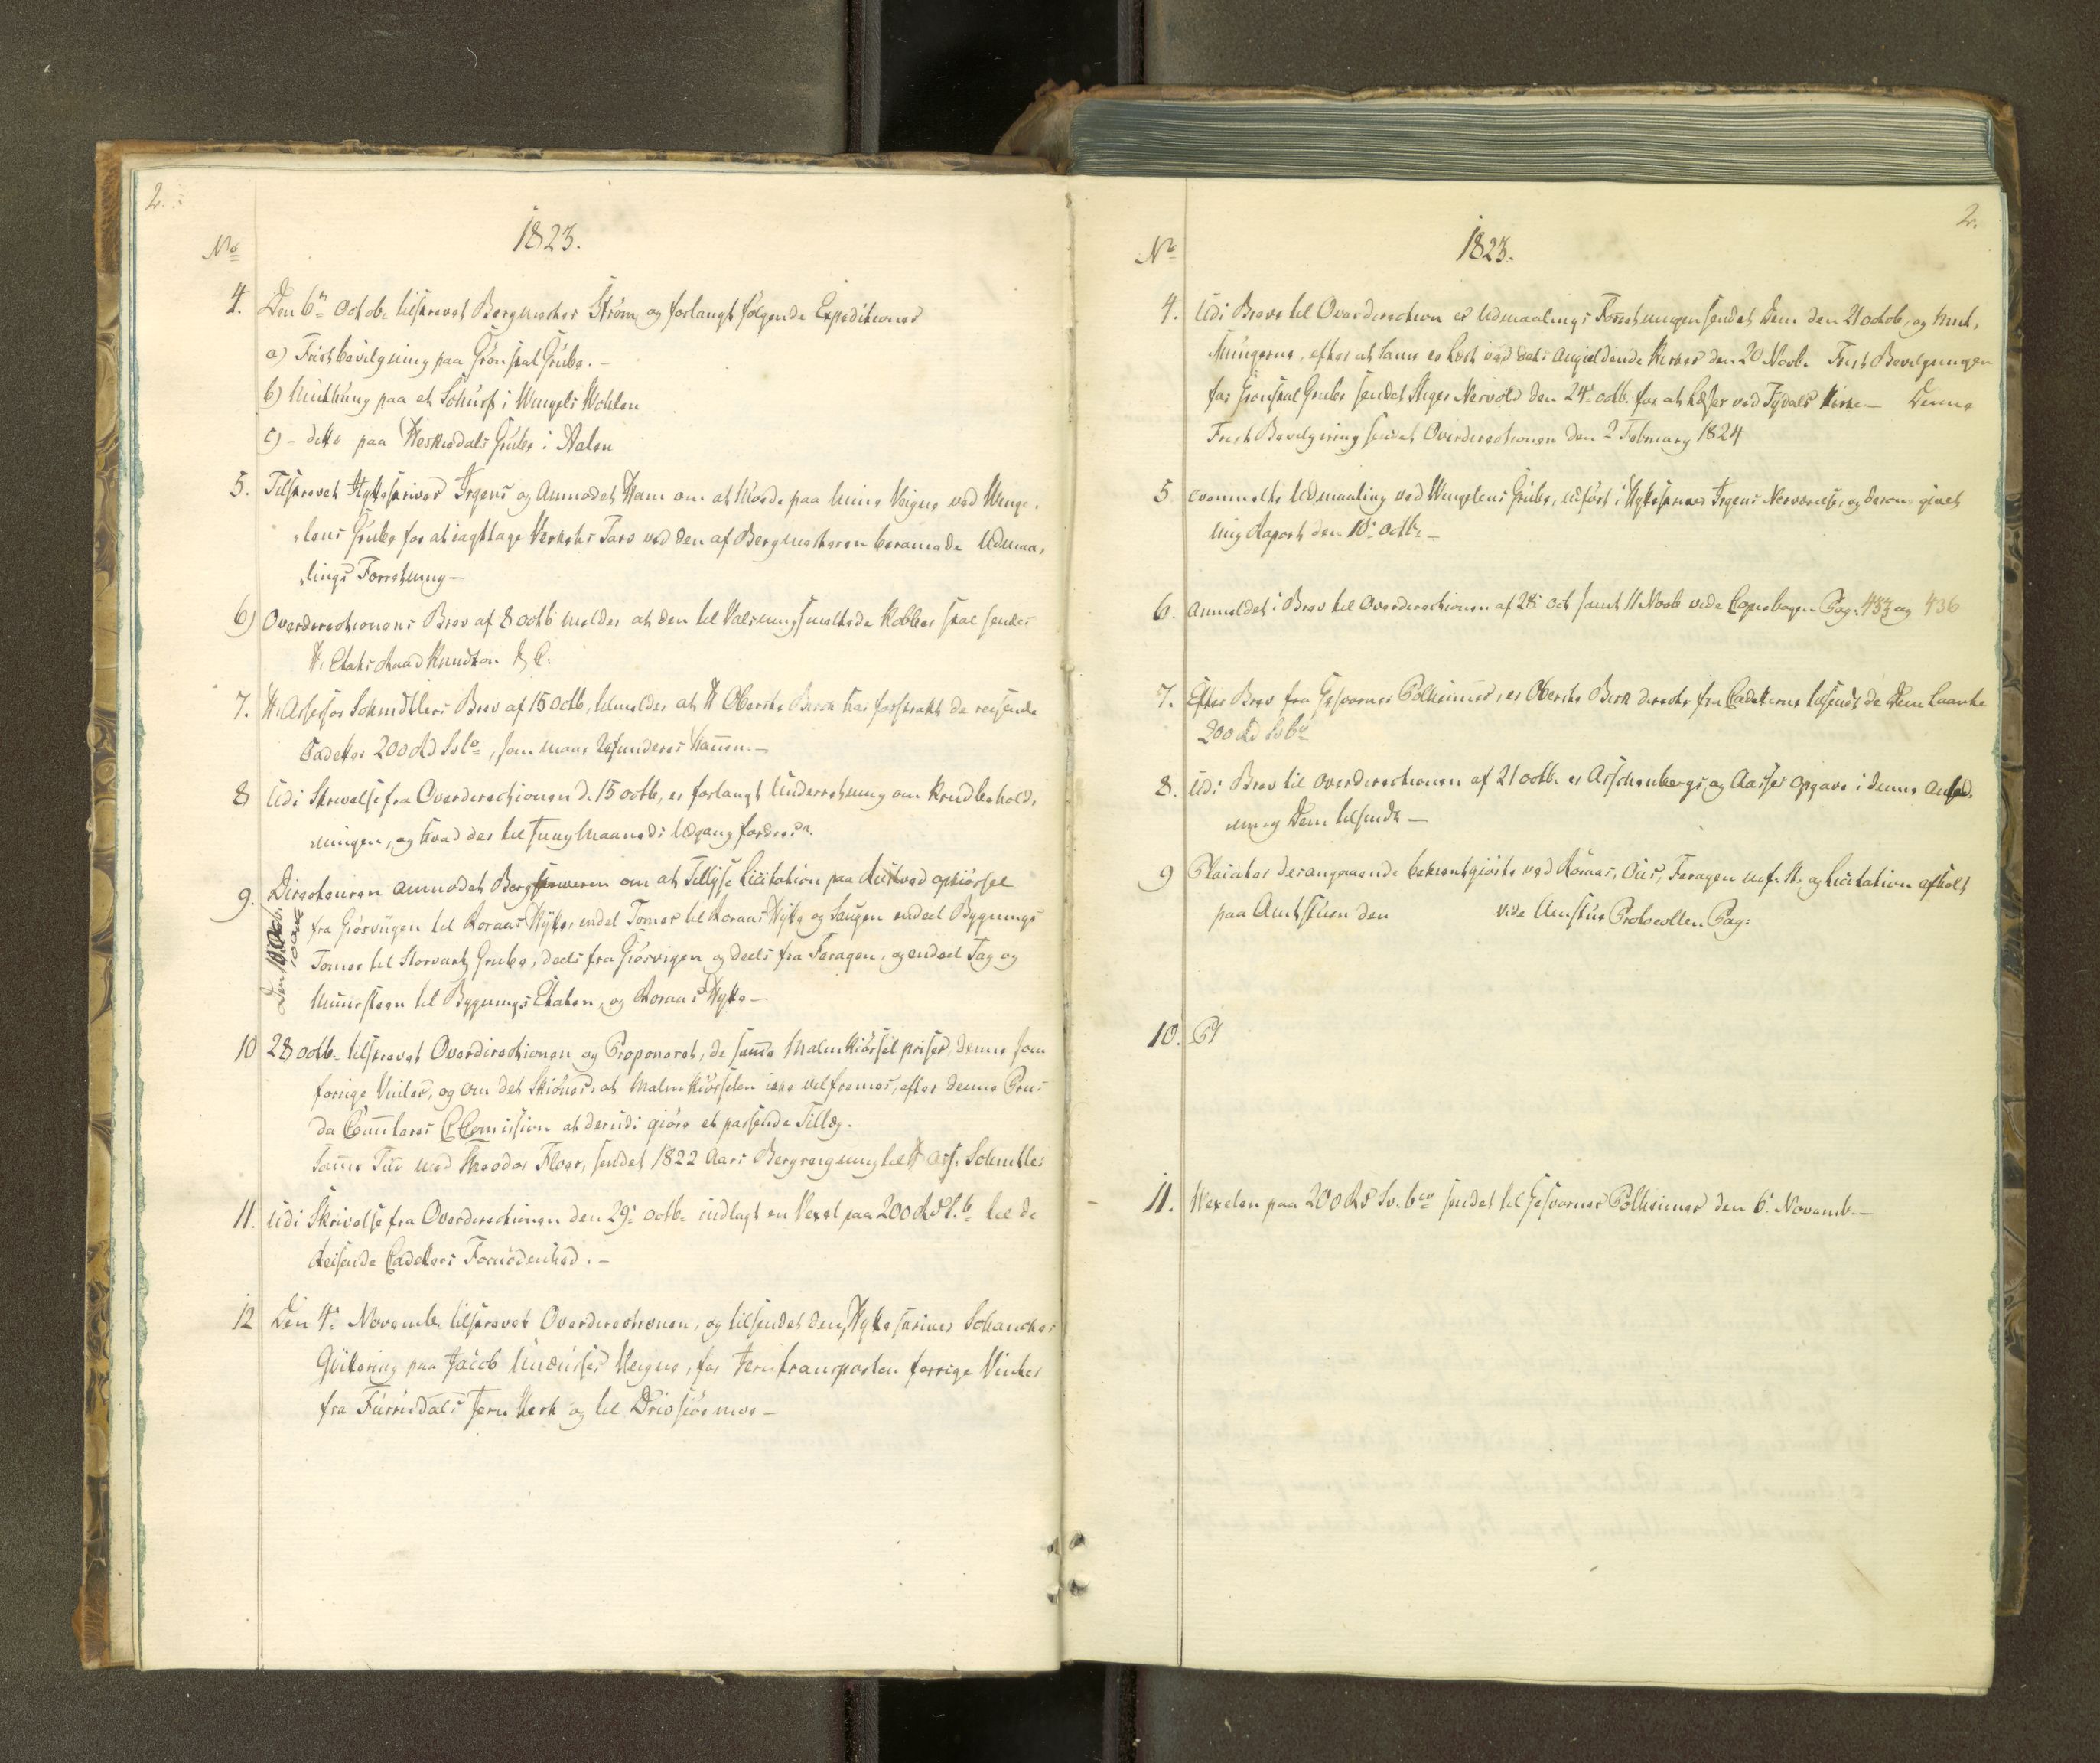 2.
1823.
No
4. Den 6te Octob: tilskrevet Bergmester Strøm og forlangt følgende Expeditioner
a) Fristbevilgning paa Grønskal Grube. –
b) Muthung paa et Schurf i Wingels Wohlen
c) – dito paa Hesknedals Grube i Aalen
5. Tilskrevet Hytteskriver Irgens og Anmodet Ham om at Møde paa Mine Vegne ved Winge,
„lens Grube for at iagttage Verkets Tarv ved den af Bergmesteren beramede Udmaa,
„lings Forretning –
6) Overdirectionens Brev af 8 octb melder at den til Valsning smeltede Kobber skal sendes
H. Etatsraad Knudtzon & C:
7. H. Assessor Schmidtlers Brev af 15 octb, tilmelder at H Oberste Birch har forstrakt de reisende
Cadetter 200 Rd Solo, som maae Refunderes Hannem. –
8 Udi Skrivelse fra Overdirectionen d. 15 octb, er forlangt Underretning om Krudbehold,
ningen, og hvad der til Juny Maaneds Udgang fordres.
9. Directeuren anmodet Bergskriveren om at Tillyse Licitation paa Rustved opkiørsel
fra Giosvigen til Roraas Hytte, endel Tømer til Roraas Hytte og Saugen endeel Bygnings
Tømer til Storvartz Grube, deels fra Giosvigen og deels fra Feragen, og endeel Tag og
Muursteen til Bygnings Etaten, og Roraas Hytte –
10 28 octb. tilskrevet Overdirectionen og Proponeret, de samme Malmkiørsel priser denne som
forrige Vinter, og om det skiønnes at Malm Kiørselen ikke vil fremes, efter denne Priis
da Committeres C Comission at derudi giøre et passende Tillæg.
Samme Tiid med Theodor Floer, sendet 1822 Aars Bergregning til H Ass. Schmitler
11. Udi Skrivelse fra Overdirectionen den 29de octb. indlagt en Vexel paa 200 Rd S.b til de
Reisende Cadetters Fornødenhed. –
12 Den 4de Novemb. tilskrevet Overdirectionen, og tilsendet den, Hytteskriver Schanches
Qvitering paa Jacob Vegne, for Jerntransporten forrige Vinter
fra Furrudals Jern Verk og til Drivsiøemoe –
2.
1823.
No
4. Udi Brev til Overdirection er Udmaalings Forretningen sendet Dem den 21 octob, og Mut,
Mungerne, efter at Same er Læst ved vedkommende Kirker den 20 Novb. Frist Bevilgningen
for Gronskal Grube sendet Stiger Nervold den 24de octb. for at Læses ved Tydals Kirke – Denne
Frist Bevilgning sendet Overdirectionen den 2 February 1824
5 ovenmeldte Udmaaling ved Wingelens Grube, udført i Hytteskriver Irgens Nerværelse, og derom givet
Mig Raport den 18de octb. –
6. Anmeldet i Brev til Overdirectionen af 28 oct samt 11 Novb vide Copiebogen Pag. 433 og 436
7. Efter Brev fra Gesvorner Polheimer, er Oberste Birch directe fra Cadetterne tilsendt de Dem Laante
200 Rd Sb
8. Udi Brev til Overdirectionen af 21 octb. er Aschenbergs og Aasses opgave i denne Anled,
ning Dem tilsendt –
9 Placater derangaaende bekiendtgiorte ved Roraas, Aas, Feragen m.f. St. og Licitation afholdt
paa Amtstuen den vide Amstue Protocollen Pag:
10. Pl
11. Wexelen paa 200 Rd Sv. bco sendet til Gesvorner Polheimer den 6. Novemb. –